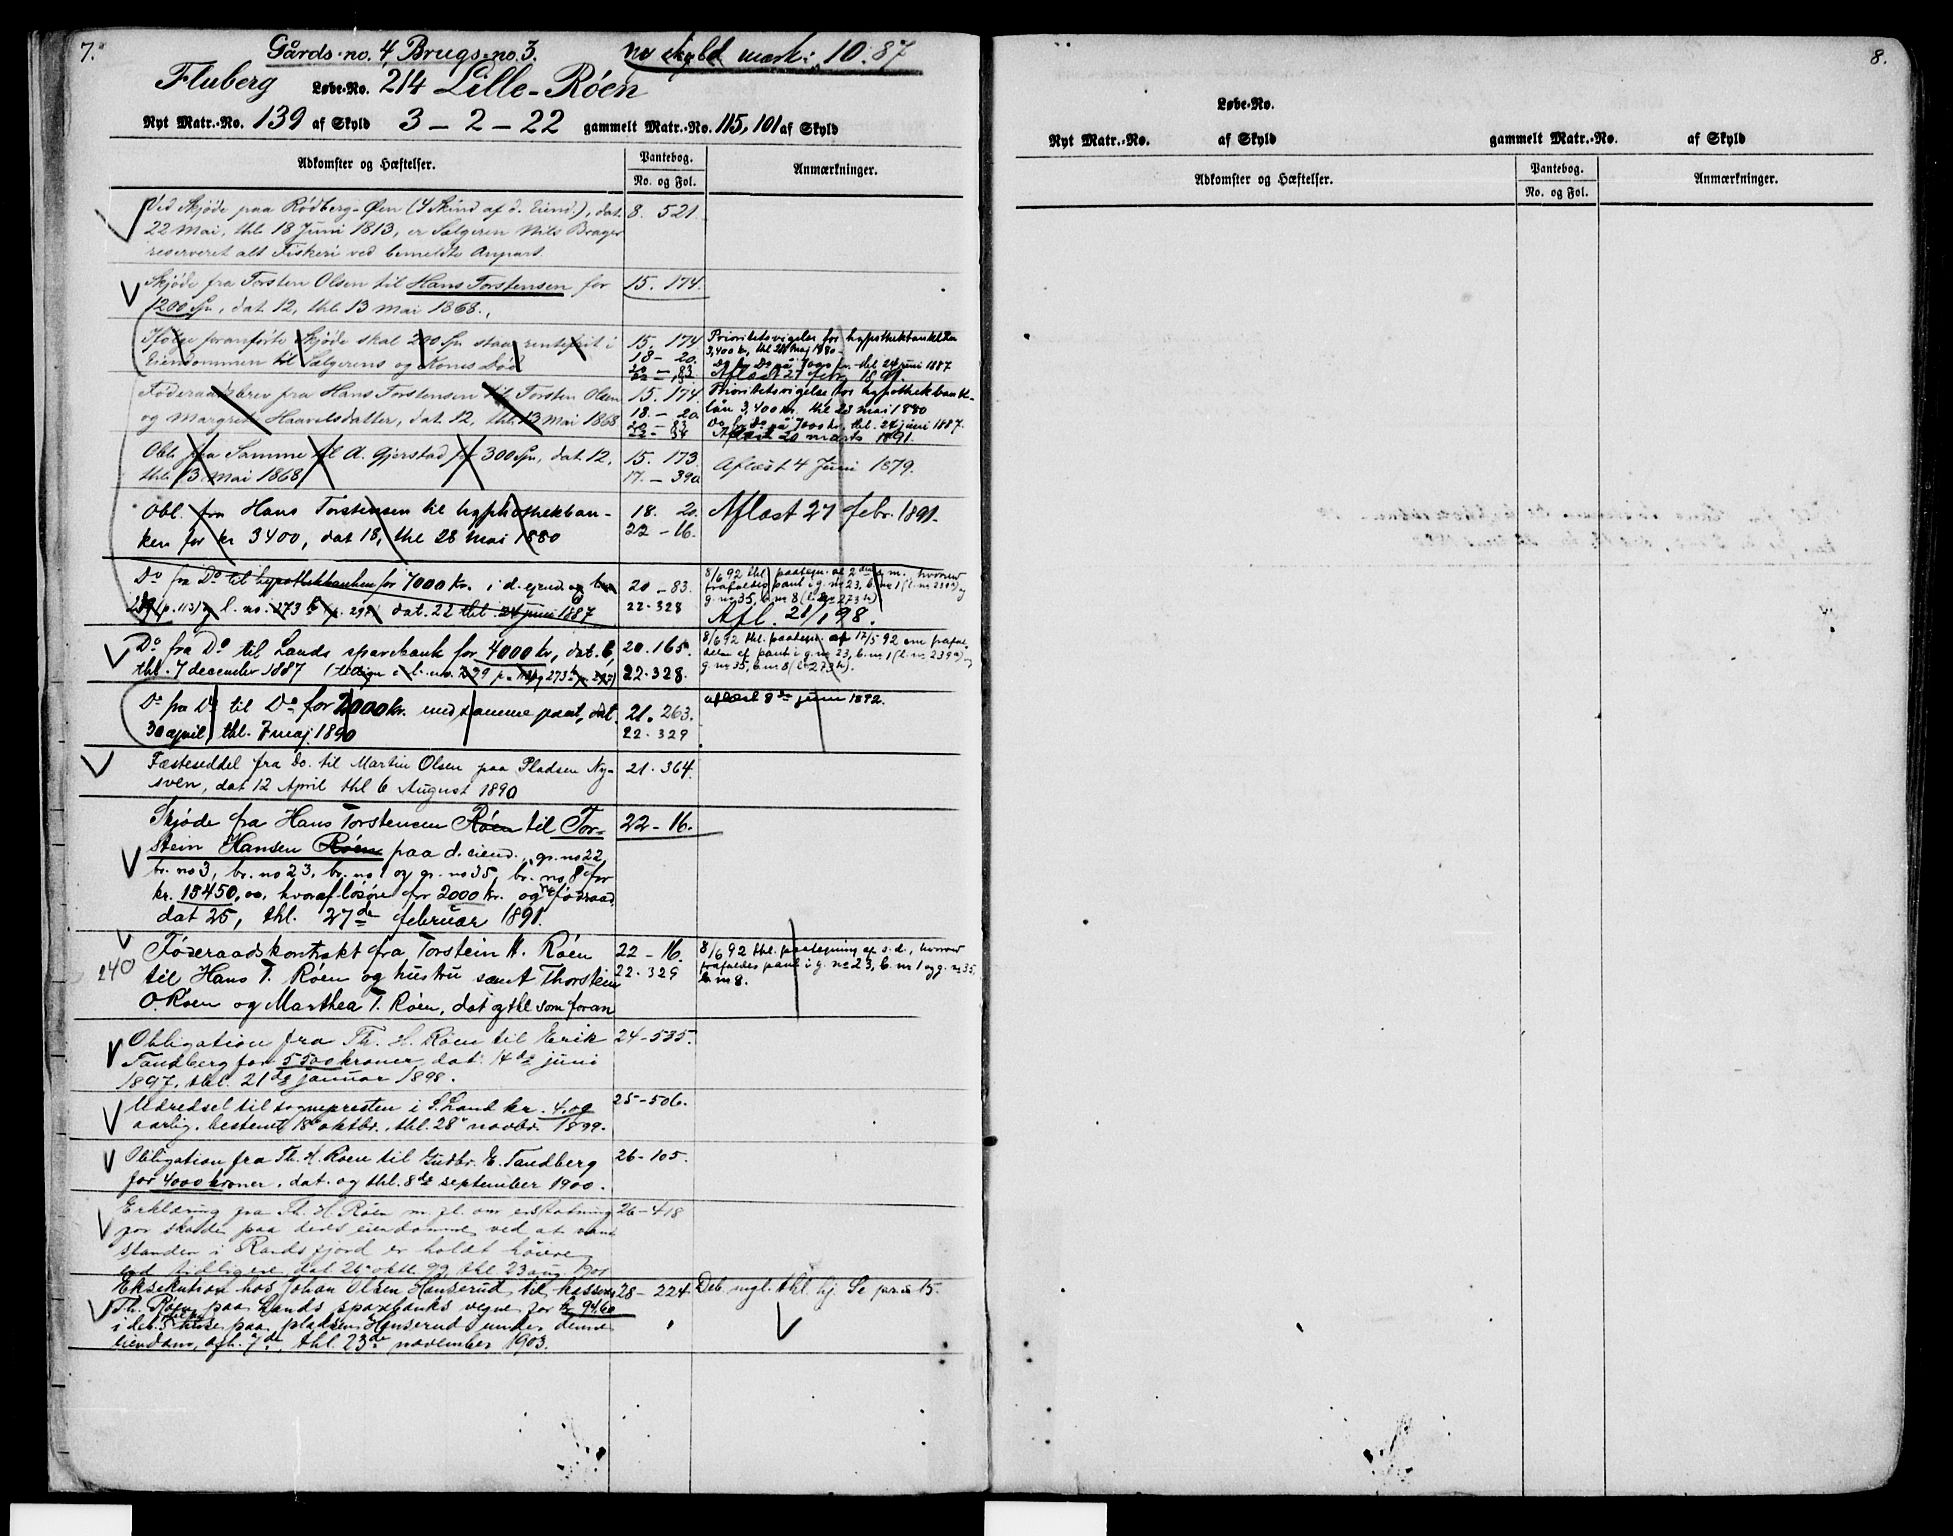 7.
Gårds-no. 4 Brugs-no. 3. ny skyld mark: 10.87
Fluberg Løbe-No. 214 Lille-Röen
Nyt Matr.-No. 139 af Skyld 3-2-22 gammelt Matr.-No. 115, 101 af Skyld
Adkomster og Hæftelser. Pantebog. No. og Fol. Anmærkninger.
Ved Skjøde paa Rødberg-Øen (4 Skind af d. Eiend.), dat. 8. 521.
22 Mai, thl. 18 Juni 1813, er Sælgeren Nils Brager
reserveret alt Fiskeri ved bemeldte Anpart.
Skjøde fra Torsten Olsen til Hans Torstensen for 15. 174.
1200 Spd., dat. 12, thl. 13 Mai 1868.
Ifølge foranførte Skjøde skal 200 Spd. staa rentefrit i 15. 174 Prioritetsvigelse for hypothekbanklån
Eiendommen til Sælgerens og Kones Død 18 - 20. 3,400 kr,
20 - 83 Do for Do på 7000 kr. thl 24 juni 1887
Aflæst 27 febr. 1891.
Føderaadsbrev fra Hans Torstensen til Torsten Olsen 15. 174. Prioritetsvigelse for hypothekbank-
og Margrete Haavelsdatter, dat. 12, thl. 13 Mai 1868 18. - 20 lån 3,400 kr. thl 28 mai 1880
20 - 83 Do for Do på 7000 kr, thl. 24 juni 1887.
Aflæst 20 marts 1891.
Obl. fra Samme til A. Gjerstad for 300 Spd., dat. 12, 15. 173. Aflæst 4 Juni 1879.
thl. 13. Mai 1868 17. - 390
Obl. fra Hans Torstensen til hypothekban- 18. 20. Aflæst 27 febr. 1891.
ken for kr 3400, dat 18, thl 28 mai 1880 22 - 16.
Do fra Do til hypothekbanken for 7000 kr. i d. ejend og 20 - 83. 8/6 92 thl. paategn. af 2den s. m., hvorved
l. no. 273 dat. 22 thl. 24 juni 1887 22. 328 frafaldes pant i g. no 23, b. no 1 (l. no 239a) og
g. no 35, b. no 8 (l. no 273 b)
Afl. 21/1 98.
Do fra Do til Lands sparebank for 4000 kr, dat. 6, 20. 165. 8/6 92 thl. paategn. af 17/5 92 om frafal-
thl. 7 december 1887 22. 328. delse af pant i g. no 23, b. no 1 (l. no 239a) og
g. no 35, b. no 8 (l. no 273 b).
Do fra Do til Do for 2000 kr. med samme pant, dat. 21. 263. aflæst 8de juni 1892.
30 april, thl. 7 maj 1890 22. 329
Fæsteseddel fra do. til Martin Olsen paa Pladsen Ny- 21. 364.
sven, dat 12 April thl 6 August 1890
Skjøde fra Hans Torstensen Röen til Tor- 22 - 16.
stein Hansen Röen paa d. eiend., gr. no 22,
br. no 3, br. no 23, br. no 1 og gr. no 35, br. no 8 for
kr. 15450,00, hvoraf løsøre for 2000 kr. og føderaad,
dat 25, thl. 27de februar 1891.
Föderaadskontrakt fra Torstein H. Röen 22 - 16. 8/6 92 thl. paategning af s. d., hvorved
240 til Hans T. Röen og hustru samt Thorstein 22. 329 frafaldes pant i g. no 23, b. no 1 og g. no 35,
O. Röen og Marthea T. Röen, dat og thl som foran b. no 8.
Obligation fra Th. H. Röen til Erik 24-535.
Tandberg for 5500 kroner dat. 14de juni
1897, thl. 21de januar 1898.
Udredsel til sognepresten i S. Land kr. 4,00 25-506.
aarlig, bestemt 18 oktbr., thl. 28 novbr. 1899.
Obligation fra Th. H. Röen til Gudbr. E. Tandberg 26-105.
for 4000 kroner, dat. og thl. 8de september 1900.
Erklæring fra Th. H. Röen m. fl. om erstatning 26-418
for skade paa deres eiendomme ved at vand-
standen i Randsfjord er holdt høiere
end tidligere, dat. 26 oktb. 99 thl. 23 aug. 1901
Eksekution hos Johan Olsen Hanserud til kasserer 28-224. Deb. mgl. thl. hj. Se
Th. Röen paa Lands sparebanks vegne for kr 94,60
i deb. huse paa pladsen Hanserud under denne
eiendom, afh. 7de, thl. 23de november 1903.
8.
Løbe-No.
Nyt Matr.-No. af Skyld gammelt Matr.-No. af Skyld
Adkomster og Hæftelser. Pantebog. No. og Fol. Anmærkninger.